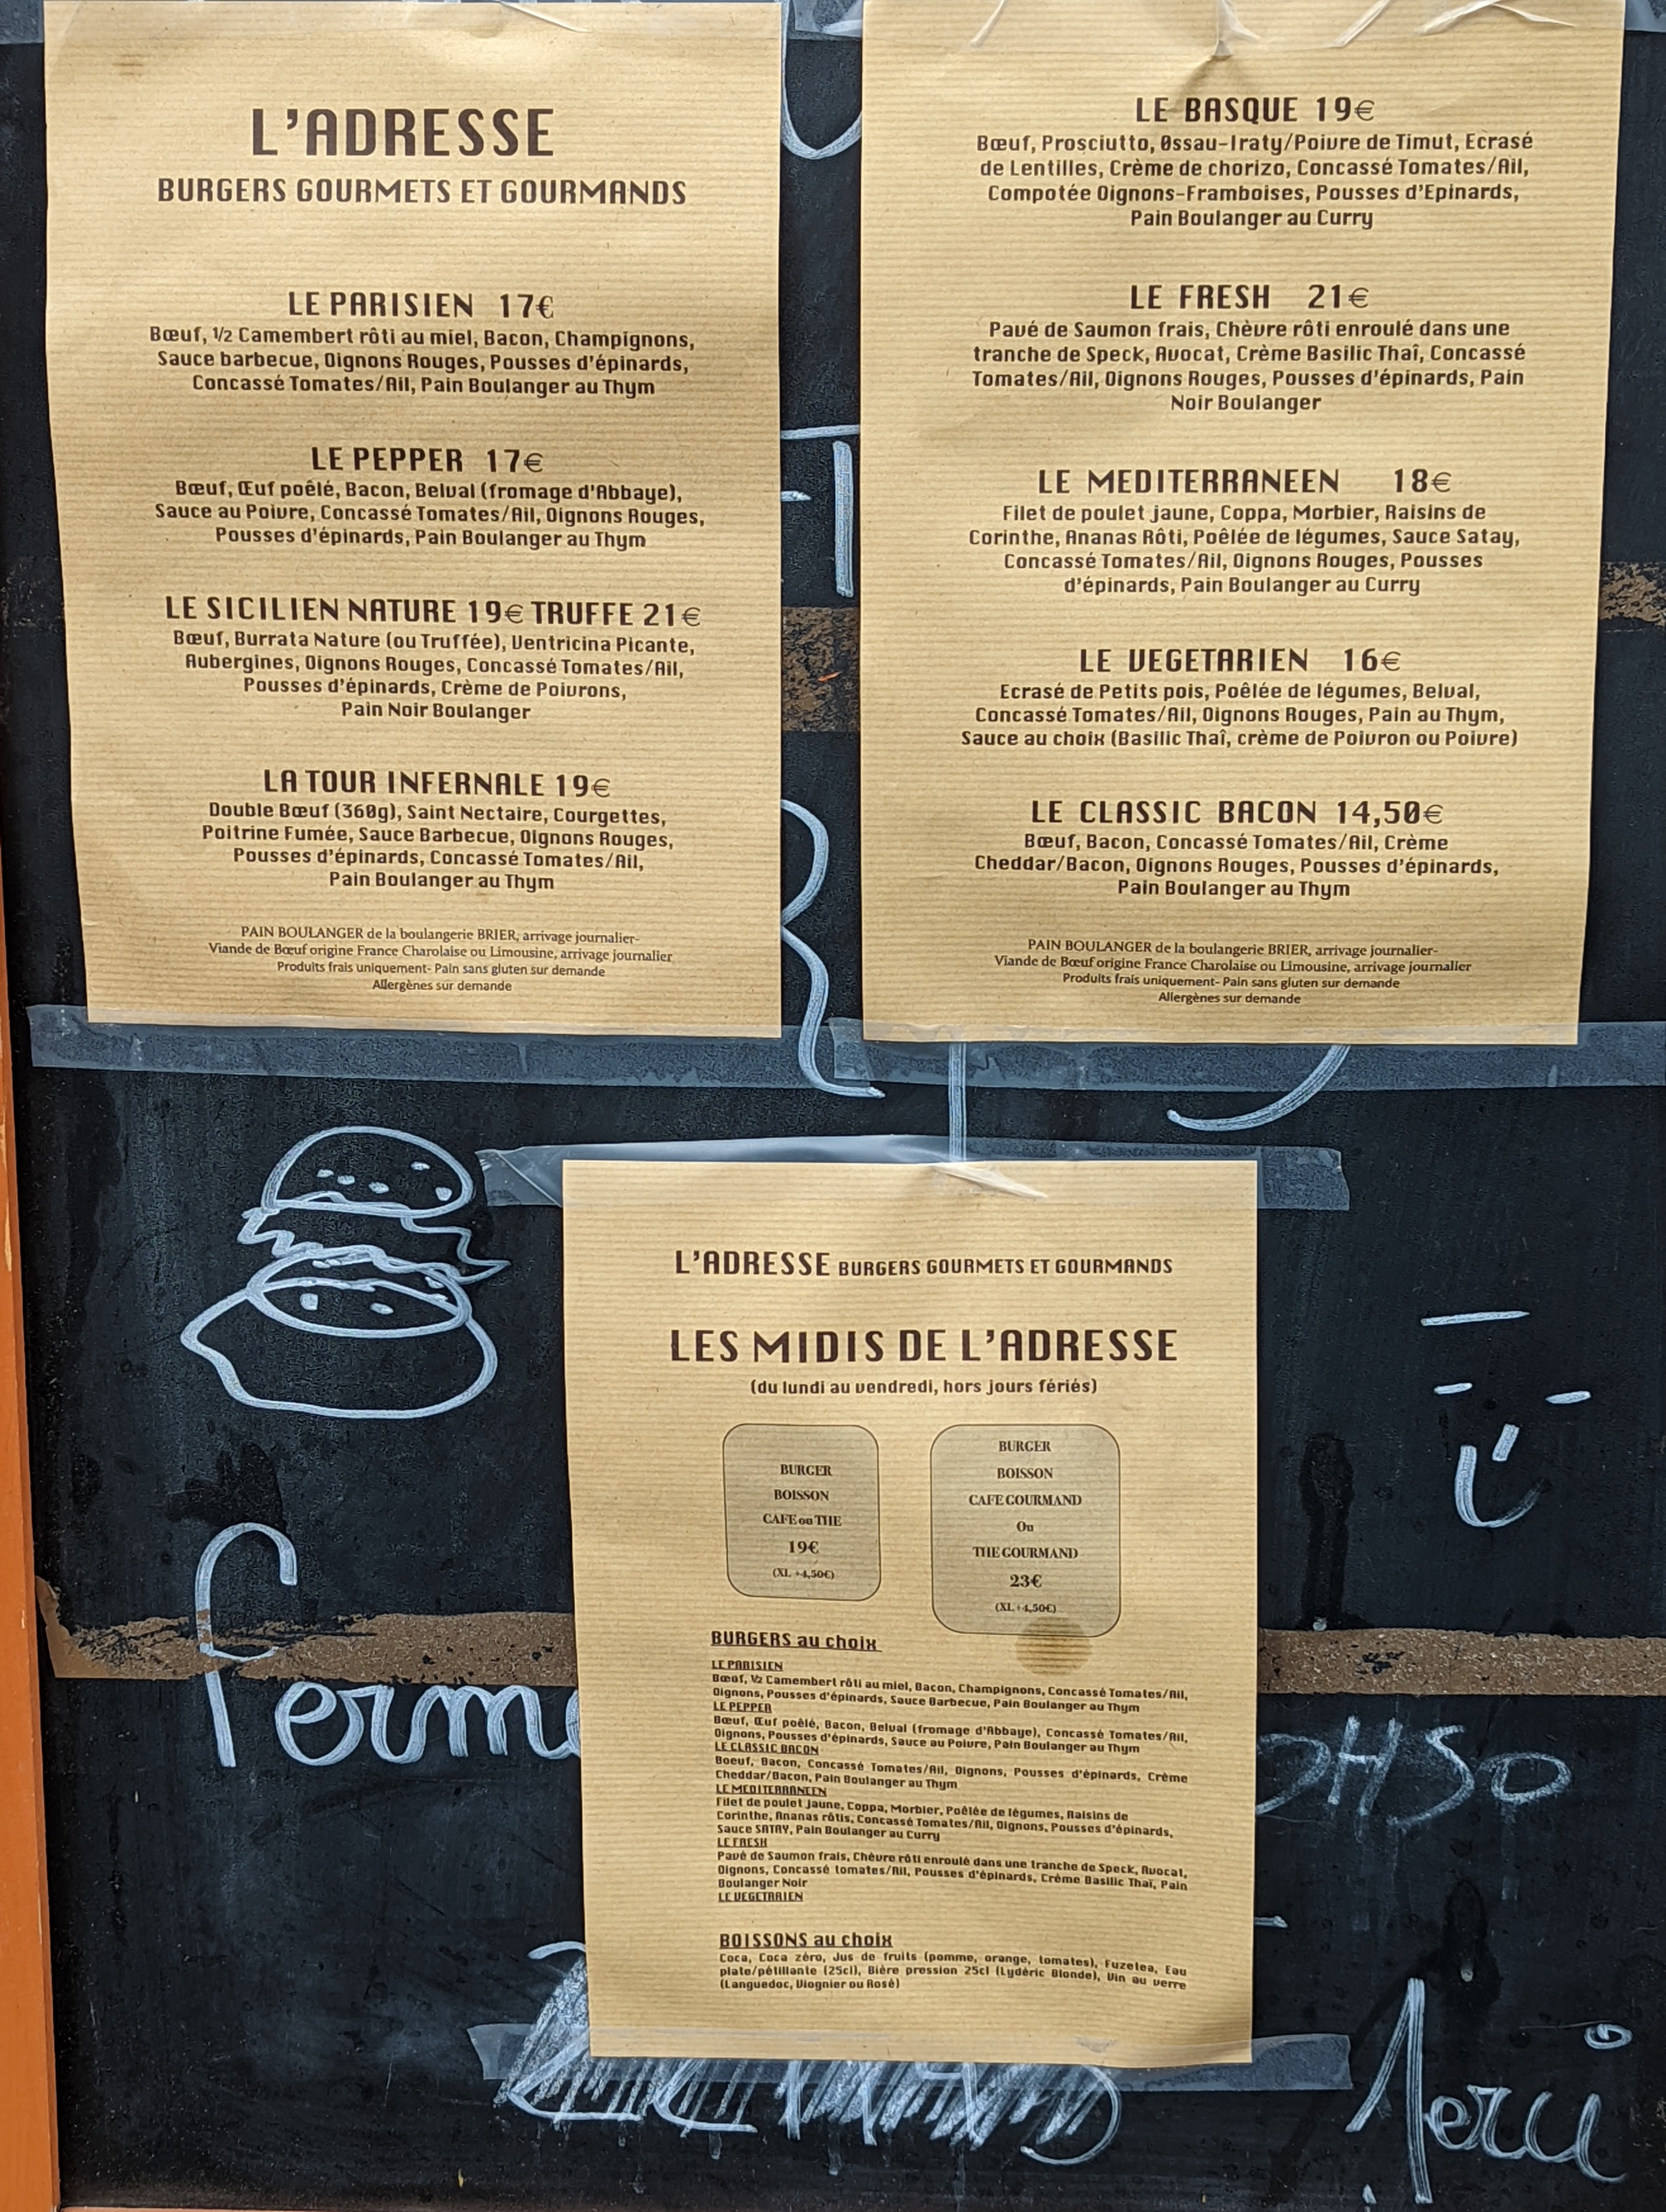 L'ADRESSE
BURGERS GOURMETS ET GOURMANDS
LE PARISIEN 17€
Bœuf, ½ Camembert rôti au miel, Bacon, Champignons,
Sauce barbecue, Oignons Rouges, Pousses d'épinards,
Concassé Tomates/Ail, Pain Boulanger au Thym
LE PEPPER 17€
Bœuf, Œuf poêlé, Bacon, Belval (fromage d'Abbaye),
Sauce au Poivre, Concassé Tomates/Ail, Oignons Rouges,
Pousses d'épinards, Pain Boulanger au Thym
LE SICILIEN NATURE 19€ TRUFFE 21€
Bœuf, Burrata Nature (ou Truffée), Ventricina Picante,
Aubergines, Oignons Rouges, Concassé Tomates/Ail,
Pousses d'épinards, Crème de Poivrons,
Pain Noir Boulanger
LA TOUR INFERNALE 19€
Double Bœuf (360g), Saint Nectaire, Courgettes,
Poitrine Fumée, Sauce Barbecue, Oignons Rouges,
Pousses d'épinards, Concassé Tomates/Ail,
Pain Boulanger au Thym
PAIN BOULANGER de la boulangerie BRIER, arrivage journalier-
Viande de Bœuf origine France Charolaise ou Limousine, arrivage journalier
Produits frais uniquement- Pain sans gluten sur demande
Allergènes sur demande
LE BASQUE 19€
Bœuf, Prosciutto, Ossau-Iraty/Poivre de Timut, Ecrasé
de Lentilles, Crème de chorizo, Concassé Tomates/Ail,
Compotée Oignons-Framboises, Pousses d'Epinards,
Pain Boulanger au Curry
LE FRESH 21€
Pavé de Saumon frais, Chèvre rôti enroulé dans une
tranche de Speck, Avocat, Crème Basilic Thaî, Concassé
Tomates/Ail, Oignons Rouges, Pousses d'épinards, Pain
Noir Boulanger
LE MEDITERRANEEN 18€
Filet de poulet jaune, Coppa, Morbier, Raisins de
Corinthe, Ananas Rôti, Poêlée de légumes, Sauce Satay,
Concassé Tomates/Ail, Oignons Rouges, Pousses
d'épinards, Pain Boulanger au Curry
LE VEGETARIEN 16€
Ecrasé de Petits pois, Poêlée de légumes, Belval,
Concassé Tomates/Ail, Oignons Rouges, Pain au Thym,
Sauce au choix (Basilic Thaî, crème de Poivron ou Poivre)
LE CLASSIC BACON 14,50€
Bœuf, Bacon, Concassé Tomates/Ail, Crème
Cheddar/Bacon, Oignons Rouges, Pousses d'épinards,
Pain Boulanger au Thym
PAIN BOULANGER de la boulangerie BRIER, arrivage journalier-
Viande de Bœuf origine France Charolaise ou Limousine, arrivage journalier
Produits frais uniquement- Pain sans gluten sur demande
Allergènes sur demande
L'ADRESSE BURGERS GOURMETS ET GOURMANDS
LES MIDIS DE L'ADRESSE
(du lundi au vendredi, hors jours fériés)
BURGER
BOISSON
CAFE ou THE
19€
(XL +4,50€)
BURGER
BOISSON
CAFE GOURMAND
Ou
THE GOURMAND
23€
(XL +4,50€)
BURGERS au choix
LE PARISIEN
Bœuf, ½ Camembert rôti au miel, Bacon, Champignons, Concassé Tomates/Ail,
Oignons, Pousses d'épinards, Sauce Barbecue, Pain Boulanger au Thym
LE PEPPER
Bœuf, Œuf poêlé, Bacon, Belval (fromage d'Abbaye), Concassé Tomates/Ail,
Oignons, Pousses d'épinards, Sauce au Poivre, Pain Boulanger au Thym
LE CLASSIC BACON
Boeuf, Bacon, Concassé Tomates/Ail, Oignons, Pousses d'épinards, Crème
Cheddar/Bacon, Pain Boulanger au Thym
LE MEDITERRANEEN
Filet de poulet jaune, Coppa, Morbier, Poêlée de légumes, Raisins de
Corinthe, Ananas rôtis, Concassé Tomates/Ail, Oignons, Pousses d'épinards,
Sauce SATAY, Pain Boulanger au Curry
LE FRESH
Pavé de Saumon frais, Chèvre rôti enroulé dans une tranche de Speck, Avocat,
Oignons, Concassé tomates/Ail, Pousses d'épinards, Crème Basilic Thaï, Pain
Boulanger Noir
LE VEGETARIEN
BOISSONS au choix
Coca, Coca zéro, Jus de fruits (pomme, orange, tomates), Fuzetea, Eau
plate/pétillante (25cl), Bière pression 25cl (Lydéric Blonde), Vin au verre
(Languedoc, Viognier ou Rosé)
ferm
H50
Merci